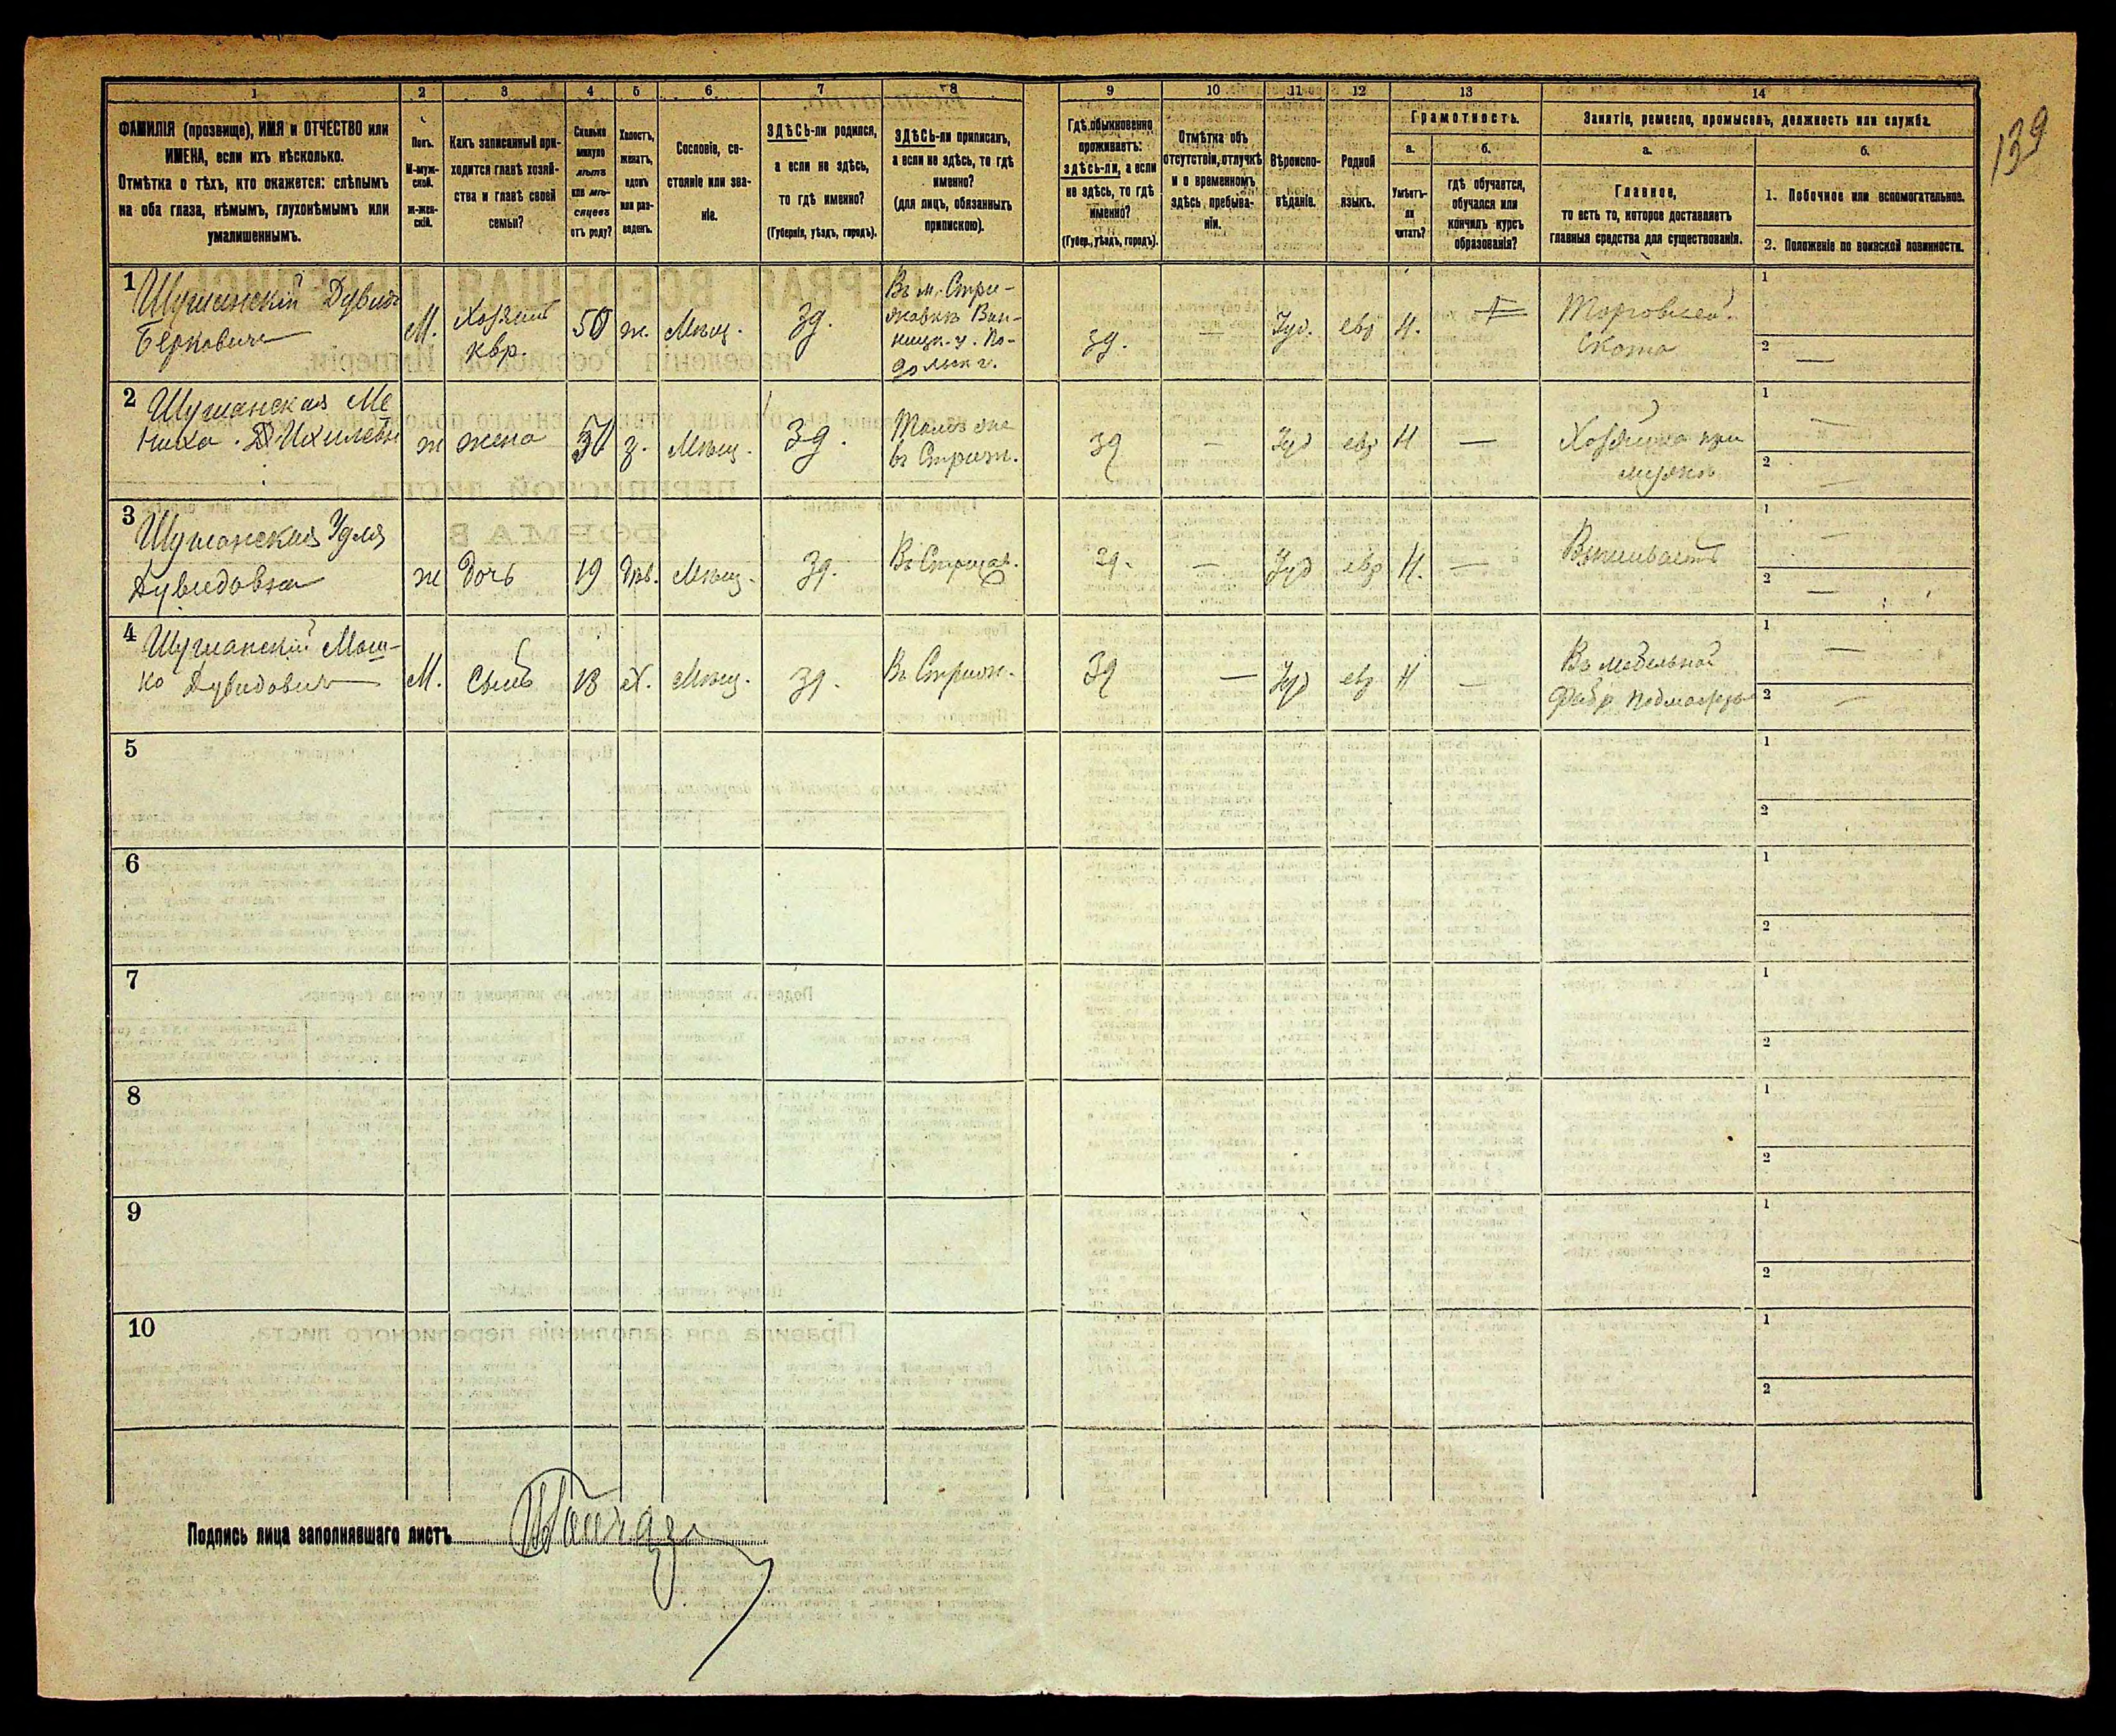 139
1 2 3 4 5 6 7 8 9 10 11 12 13 14
ФАМИЛІЯ (прозвище), ИМЯ и ОТЧЕСТВО или
ИМЕНА, если ихъ нѣсколько.
Отмѣтка о тѣхъ, кто окажется: слѣпымъ
на оба глаза, нѣмымъ, глухонѣмымъ или
умалишеннымъ.
Полъ.
М-муж-
ской.
ж-жен-
скій.
Какъ записанный при-
ходится главѣ хозяй-
ства и главѣ своей
семьи?
Сколько
минуло
лѣтъ
или мѣ-
сяцевъ
отъ роду?
Холостъ,
женатъ,
вдовъ
или раз-
веденъ.
Сословіе, со-
стояніе или зва-
ніе.
ЗДѢСЬ-ли родился,
а если не здѣсь,
то гдѣ именно?
(Губернія, уѣздъ, городъ).
ЗДѢСЬ-ли приписанъ,
а если не здѣсь, то гдѣ
именно?
(для лицъ, обязанныхъ
припискою).
Гдѣ обыкновенно
проживаетъ:
здѣсь-ли, а если
не здѣсь, то гдѣ
именно?
(Губер., уѣздъ, городъ).
Отмѣтка объ
отсутствіи, отлучкѣ
и о временномъ
здѣсь пребыва-
ніи.
Вѣроиспо-
вѣданіе.
Родной
языкъ.
Грамотность.
а.
Умѣетъ-
ли
читать?
б.
гдѣ обучается,
обучался или
кончилъ курсъ
образованія?
Занятіе, ремесло, промыселъ, должность или служба.
а.
Главное,
то есть то, которое доставляетъ
главныя средства для существованія.
б.
1. Побочное или вспомогательное.
2. Положеніе по воинской повинности.
1
Шушанскій Дувидъ
Берковичъ
М.
Хозяинъ
квр.
50
ж.
Мѣщ.
Зд.
Въ м. Стри-
жавкѣ Вин-
ницк. у. По-
дольск г.
Зд.
—
Іуд.
евр
Н.
Торговлей
Скота
1
2 —
2
Шушанская Ме
Ихилевн
ж
жена
з.
Мѣщ.
Зд.
Тамъ же
въ Стриж.
Зд
—
Іуд
евр
Н
—
Хозяйка при
мужѣ
1 —
2 —
3
Шушанская Удля
Дувидовна
ж
Дочь
19
дѣв.
Мѣщ.
Зд.
Въ Стрижав.
Зд.
—
Іуд
евр
Н.
—
1 —
2 —
4
Шушанскій Мош-
ко Дувидовичъ
М.
Сынъ
18
Х.
Мѣщ.
Зд.
Въ Стриж.
Зд
—
Іуд
евр
Н
—
Въ мебельной
фабр
1 —
2 —
5
1
2
6
1
2
7
1
2
8
1
2
9
1
2
10
1
2
Подпись лица заполнявшаго листъ